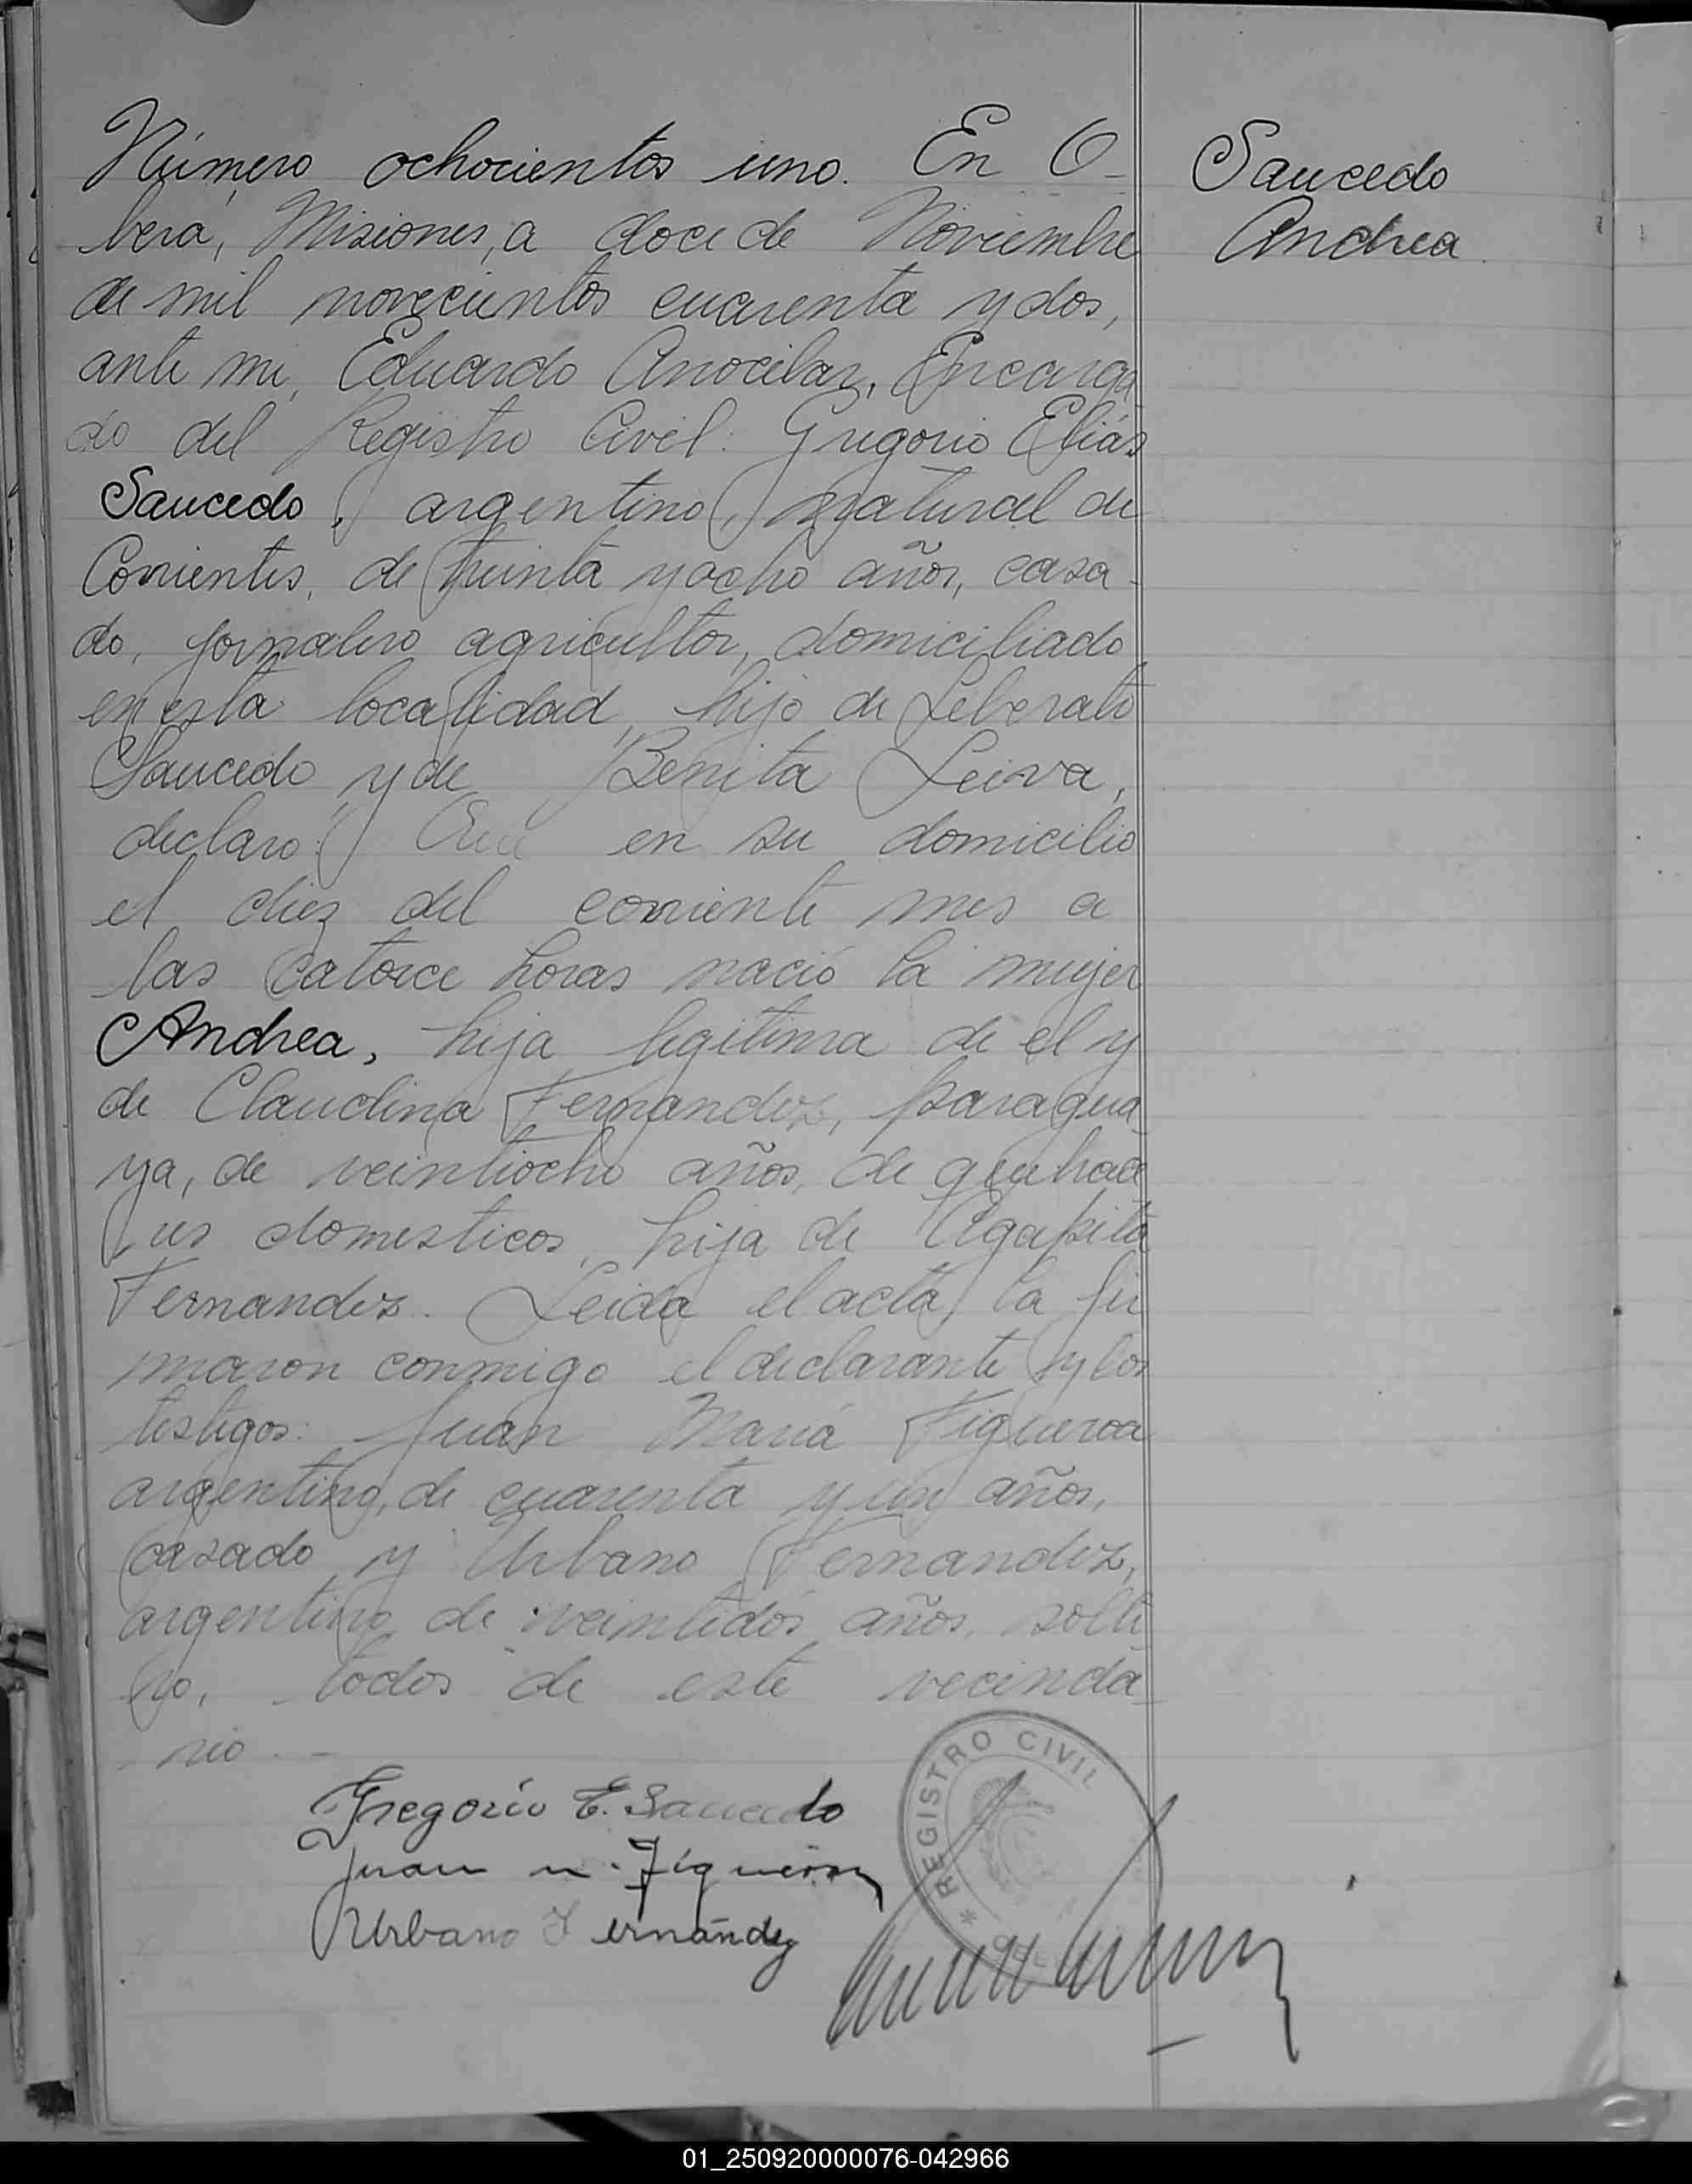 Número ochocientos uno. En O-
berá, Misiones, a doce de Noviembre
de mil novecientos cuarenta y dos,
ante mi, Eduardo Arrocibar, Encarga
do del Registro Civil: Gregorio Elias
Saucedo, argentino, natural de
Corrientes, de treinta y ocho años, casa-
do, jornalero agricultor, domiciliado
en esta localidad, hijo de Liberato
Saucedo y de Benita Leiva,
declaro: Que en su domicilio
el diez del corriente mes a
las catorce horas nació la mujer
Andrea, hija legitima de el y
de Claudina Fernandez, paragua
ya, de veintiocho años, de quehace
res domesticos, hija de Agapita
Fernandez. Leida el acta, la fir
maron conmigo el declarante y los
testigos: Juan Maria Figueroa
argentino, de cuarenta y un años,
casado y Urbano Fernandez,
argentino de veintidós años, solte
ro, todos de este vecinda
rio.-
Gregorio E. Saucedo
Juan M. Figueroa
Urbano Fernández
REGISTRO CIVIL
Saucedo
Andrea.
01_250920000076-042966